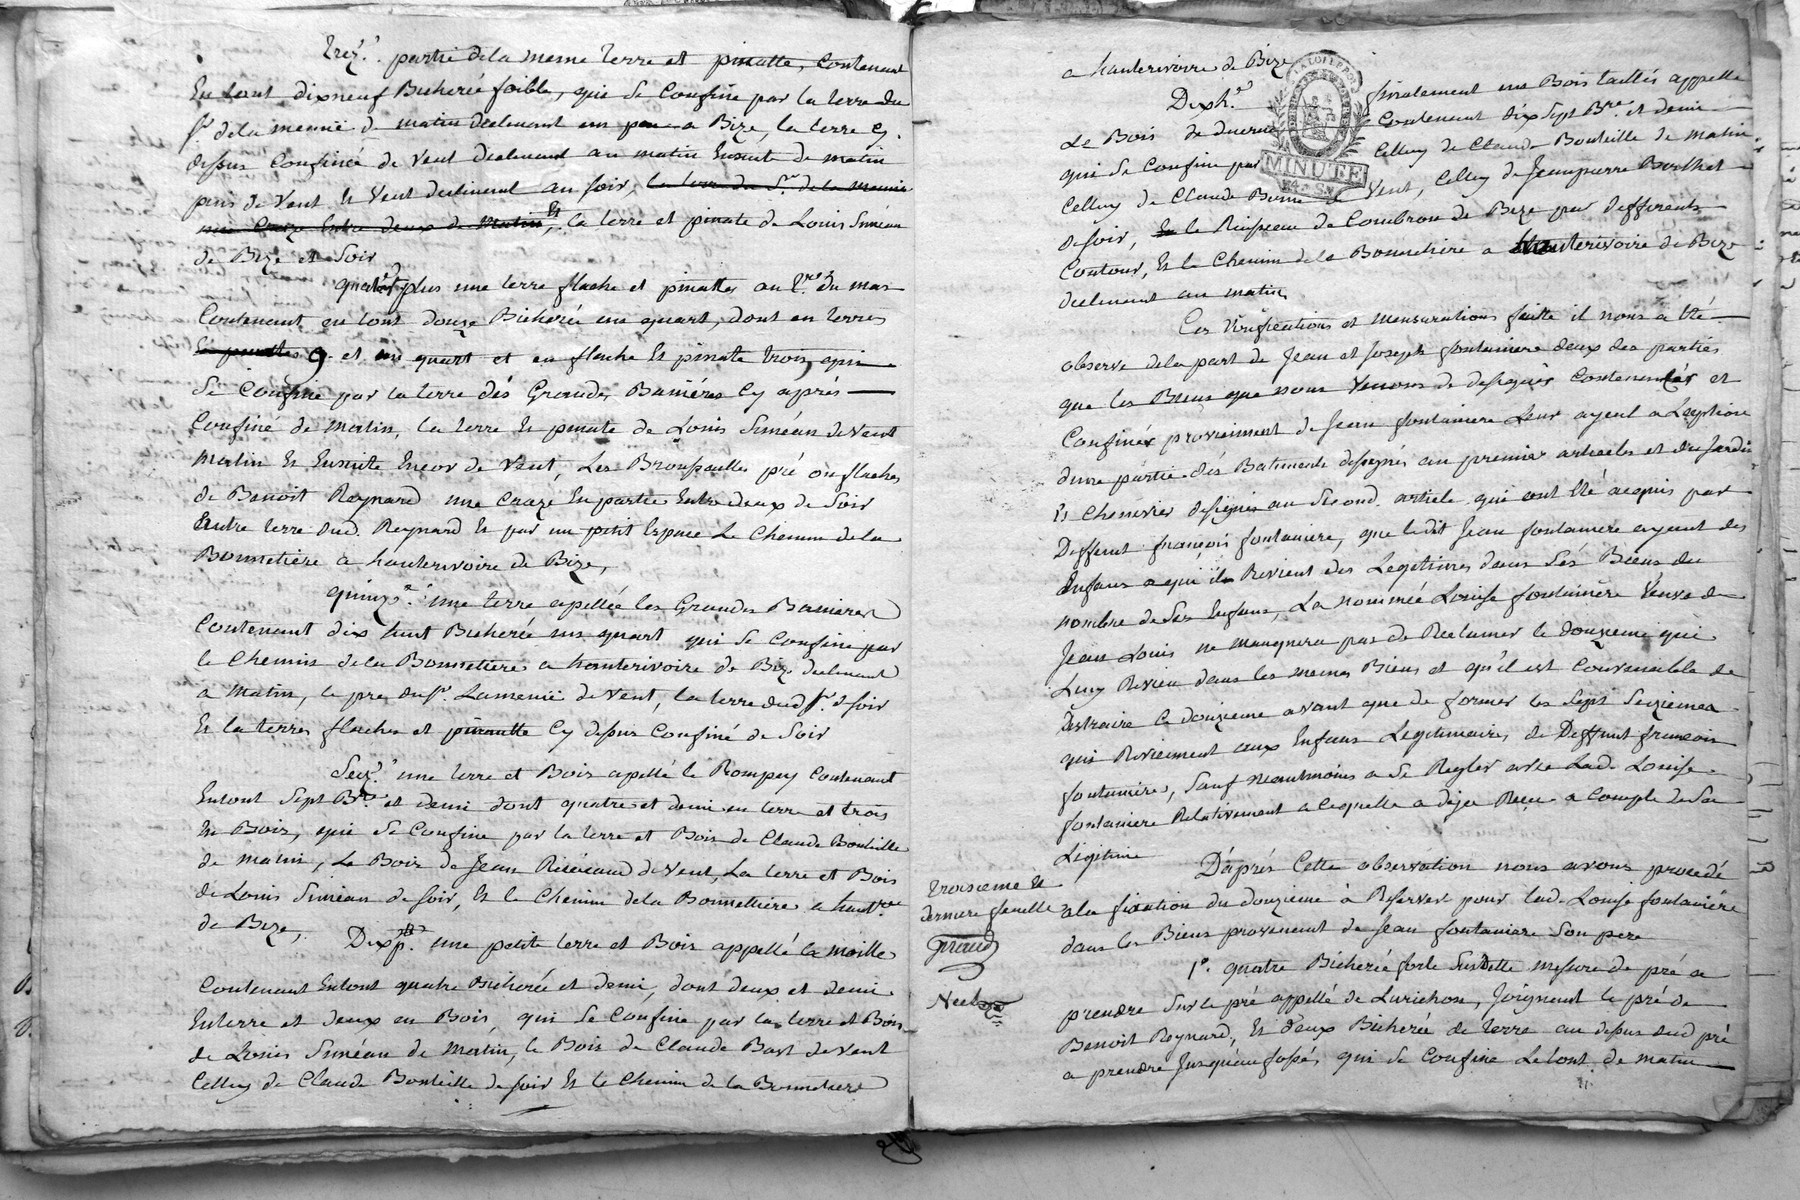 Trez.e partie de la meme terre et pinatte, Contenant
En tout dixneuf Bicherée foible, qui se Confine par la terre du
Sr. de la menuë de matin declinant un peu a Bize, la terre cy
dessus Confinée de vent declinant au matin Ensuite de matin
puis de Vent Et Vent declinant au soir, la terre du Sr. de la menuë
une Craze Entre deux de Matin, Et la terre et pinate de Louis Siméan
de Bize et Soir
quat plus une terre flache et pinattes au T.re du mas
Contenant en tout douze Bicherée un quart, dont en terres
9 et un quart et en flache Et pinate trois, qui
Se Confine par la terre des Grandes Barriéres Cy aprés
Confiné de Matin, la terre Et pinate de Louis Siméan de Vent
Matin Et Ensuite Encor de Vent, Les Broussailles pré ou flaches
de Benoit Reynard une Craze En partie Entre deux de Soir
Autre terre dud. Reynard Et par un petit Espace Le Chemin de la
Bonnetiere a hauterivoire de Bize,
quinz.e une terre apellée les Grandes Barrieres
Contenant dix huit Bicherée un quart qui se Confine par
le Chemin de la Bonnetiere a hauterivoire de Bize declinant
a Matin, le pre du Sr. Lamenuë de Vent, la terre dud Sr. de soir
Et la terres flaches et pinatte Cy dessus Confiné de Soir
Seiz.e une terre et Bois apellé le Rompey Contenant
Entout Sept B.re et demi dont quatre et demi en terre et trois
En Bois, qui se Confine par la terre et Bois de Claude Bouteille
de matin, Le Bois de Jean de Vent, La terre et Bois
de Louis Siméan de soir, Et le Chemin de la Bonnettiere a haut.re
de Bize,
Dixsp.e une petite terre et Bois appellé la maille
Contenant Entout quatre Bicherée et demi, dont deux et demi
Enterre et deux en Bois, qui se Confine par la terre et Bois
de Louis Siméan de Matin, le Bois de Claude Bast de Vent
Celluy de Claude Bouteille de soir Et le Chemin de la Bonnetiere
a hauterivoire de Bize
Dixh.e finalement un Bois taillés appelle
Le Bois de duerne Contenant dix Sept B.re et demi
qui se Confine par Celluy de Claude Bouteille de matin
Celluy de Claude Vent, Celluy de Jeanpierre Berthet
de soir, le Ruisseau de Coudron de Bize par differents
Contour, Et le Chemin de la Bonnetiere a hauterivoire de Bize
declinant au matin
LA LOI LE ROI
MINUTE
4. S.
Ces Verifications et mensurations faitte il nous a été
observé de la part de Jean et Joseph fontaniere deux des partiés
que les Biens que nous Venons de designér Contenentés et
Confinés proviennent de Jean fontaniere Leur ayeul a L'exeption
dune partie dés Batiments designés au premier articles et du Jardin
Et Chenevier designés au Second article qui ont été acquis par
Deffunt françois fontaniere, que ledit Jean fontaniere ayant des
Enfans a qui ils Revient des Legitimes dans Sés Biens du
nombre de Ses Enfans, La nommée Louise fontaniére Veuve de
Jean Louis ne manquera pas de Reclamer le douzieme qui
Luy Revien dans les memes Biens et qu'il est Convenable de
distraire le douzieme avant que de former les Sept Seiziemes
qui Reviennent aux Enfans Legitimaires de Deffunt francois
fontaniere, Sauf neantmoins a Se Regler avec Lad. Louise
fontaniere Relativement a laquelle a déja Reçu a Compte de Sa
Légitime
D'aprés Cette observation nous avons procedé
a la fixation du douzieme à Reserver pour lad. Louise fontaniére
dans les Biens provenant de Jean fontaniere Son pere
1°. quatre Bicherée forte Susdite mesure de pré a
prendre Sur le pré appellé de Lurichon, Joignant le pré de
Benoit Reynard, Et deux Bicherée de terre au dessus dud pré
a prendre Jusqu'au fossé, qui se Confine Le tout de matin
troisieme Et
derniere feuille